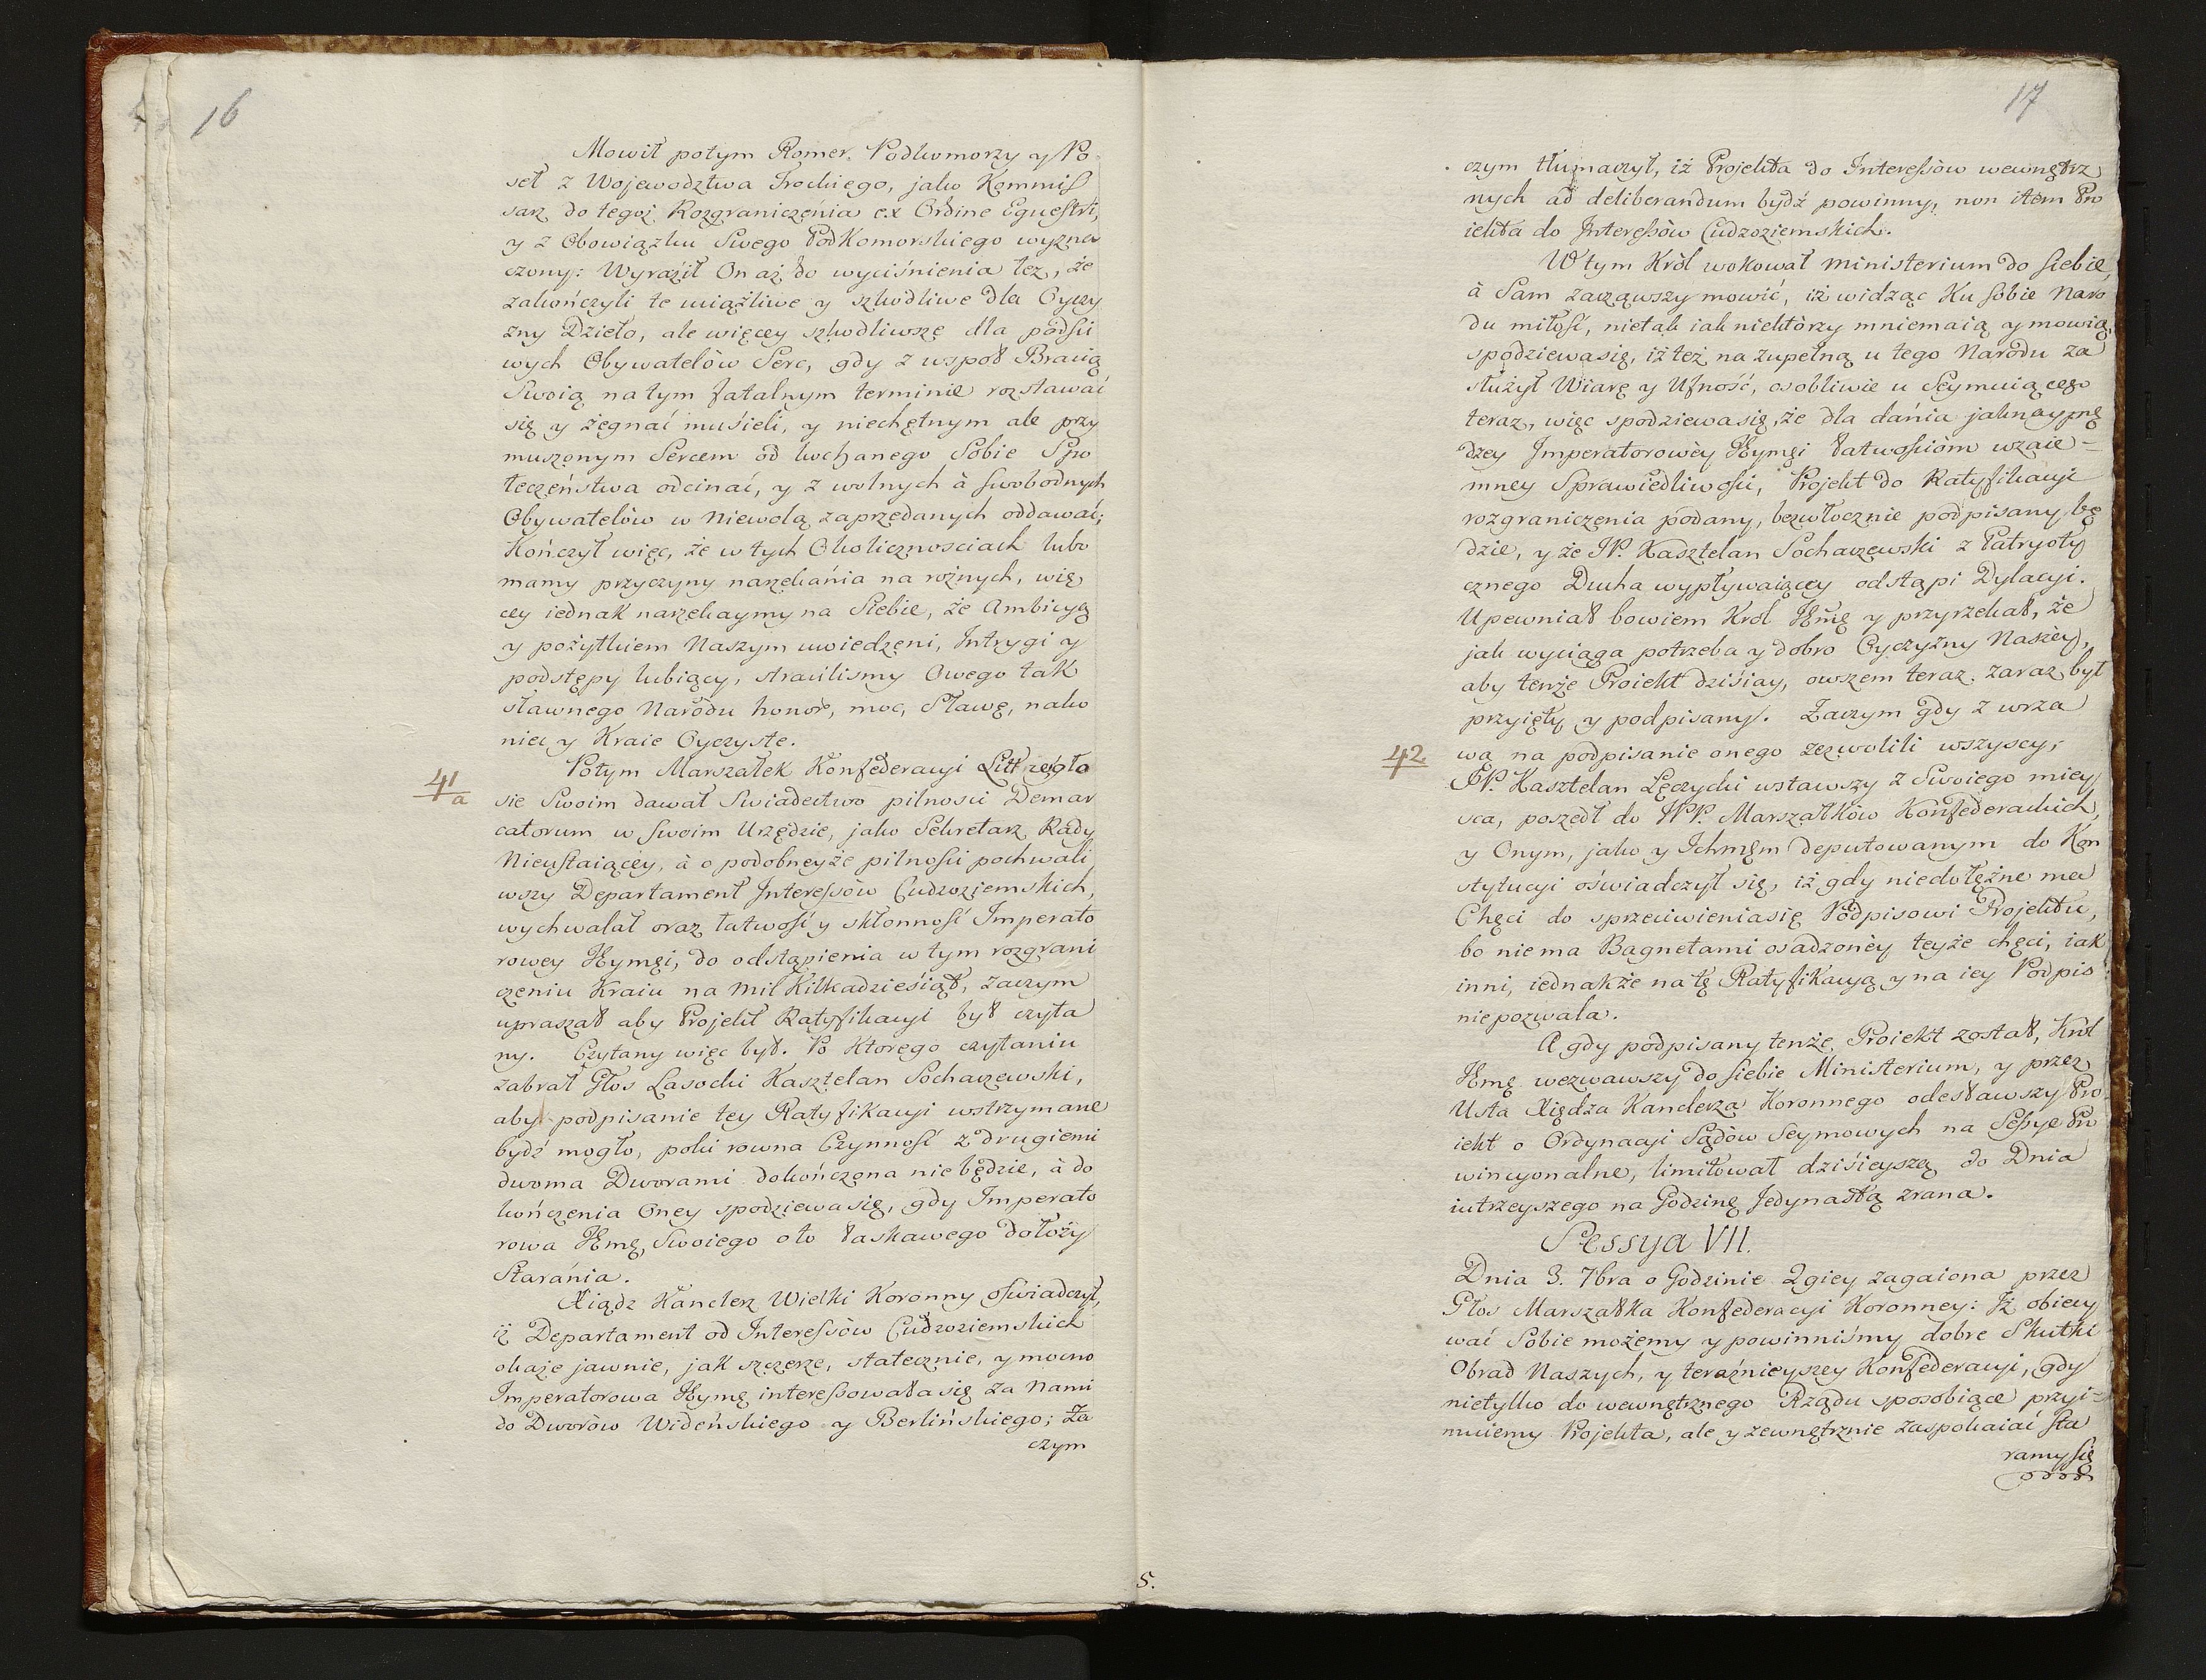 16
Mowił potym Romer, Podkomorzy y Po
seł z Wojewodztwa Trockiego, jako Kommis
sarz do tegoż Rozgraniczęnia ex Ordine Equestri,
y z Obowiązku Swego PodKomorskiego wyzna
czony: Wyraźił On aż do wyciśnienia łez, że
zakończyli te uciążliwe y szkodliwe dla Oyczy
zny Dzieło, ale więcey szkodliwszę dla podści
wych Obywatelów Serc, gdy z wspoł Bracią
Swoią na tym fatalnym terminie rozstawać
się y żegnać muśieli, y niechętnym ale przy
muszonym Sercem od kochanego Sobie Spo
łeczeństwa odcinać, y z wolnych à swobodnych
Obywatelów w Niewolą zaprzedanych oddawać;
Kończył więc, że w tych Okolicznosciach lubo
mamy przyczyny narzekánia na rożnych, wię,
cey iednak narzekaymy na Siebie, że Ambicyą
y pożytkiem Naszym uwiedzeni, Intrygi y
podstępy lubiący, straciliśmy Owego tak
sławnego Narodu honor, moc, Sławę, nako
niec y Kraie Oyczyste.
41/a
Potym Marszałek Konfederacyi Litt: w gło
sie Swoim dawał Swiadectwo pilnosci Demar
catorum w swoim Urzędzie, jako Sekretarz Rady
Nieustaiącey, à o podobneyże pilności pochwali
wszy Departament Interessów Cudzoziemskich,
wychwalał oraz łatwość y skłonność Imperato
rowey Jeymci, do odstąpienia w tym rozgrani
czeniu Kraiu na mil Kilkadziesiąt, zaczym
upraszał aby Projekt Ratyfikacyi był czyta
ny. Czytany więc był. Po Ktorego czytaniu
zabrał Głos Lasocki Kasztelan Sochaczewski,
aby podpisanie tey Ratyfikacyi wstrzymane
bydź mogło, poki rowna Czynność z drugiemi
dwoma Dworami dokończona nie będzie, à do
kończenia Oney spodziewa się, gdy Imperato
rowa Jeymć, Swoiego o to łaskawego dołoży
Staránia.
Xiądz Kanclerz Wielki Koronny oświadczył,
iż Departament od Interessów Cudzoziemskich
okaże jawnie, jak szczerze, statecznie, y mocno
Imperatorowa Jeymć interessowała się za Nami
do Dworów Wideńskiego y Berlińskiego; Za
czym
5.
17
czym tłumaczył, iż Projekta do Interessów wewnętrz
nych ad deliberandum bydź powinny, non item Pro
iekta do Interessów Cudzoziemskich.
W tym Król wokował Ministerium do siebie,
à Sam zacząwszy mowić, iż widząc Ku sobie Naro
du miłość, nietak iak niektòrzy mniemaią y mowią,
spodziewa się, iż też na zupełną u tego Narodu za
służył Wiarę y Ufność, osobliwie u Seymuiącego
teraz, więc spodziewa się, że dla dánia jaknayprę
dzey Imperatorowèy Jeymci łatwościòm wzaie-
mney Sprawiedliwości, Projekt do Ratyfikacyi
rozgraniczenia podany, bezwłocznie podpisany bę
dzie, y że JP. Kasztelan Sochaczewski z Patryoty
cznego Ducha wypływaiącey odstąpi Dylacyi.
Upewniał bowiem Krol Jmć y przyrzekał, że
jak wyciąga potrzeba y dobro Oyczyzny Naszèy,
aby tenże Proiekt dziśiay, owszem teraz zaraz był
przyięty y podpisany. Zaczym gdy z wrza
42
wą na podpisanie onego zezwolili wszyscy,
JP. Kasztelan Łęczycki wstawszy z Swoiego miey
sca, poszedł do JPP. Marszałków Konfederackich,
y Onym, jako y Ichmęm deputowanym do Kon
stytucyi oświadczył się, iż gdy niedołężne ma
Chęci do sprzeciwienia się Podpisowi Projektu,
bo nie ma Bagnetami osadzonèy teyże chęci, iak
inni, iednakże na tę Ratyfikacyą y na iey Podpis
niepozwala.
A gdy podpisany tenże Proiekt został, Król
Jmć wezwawszy do siebie Ministerium, y przez
Usta Xiędza Kanclerza Koronnego odesławszy Pro
iekt o Ordynacyi Sądòw Seymowych na Sessye Pro
wincyonalne, limitował dziśieyszą do Dnia
iutrzeyszego na Godzinę Jedynastą zrana.
Sessya VII.
Dnia 3. 7bra o Godzinie 2giey zagaiona przez
Głos Marszałka Konfederacyi Koronney: Iż obiecy
wać Sobie możemy y powinniśmy dobre Skutki
Obrad Naszych, y teraźnieyszey Konfederacyi, gdy
nietylko do wewnętrznego Rządu sposobiące przyi-
muiemy Projekta, ale y zewnętrznie zaspokaiać sta
ramy się